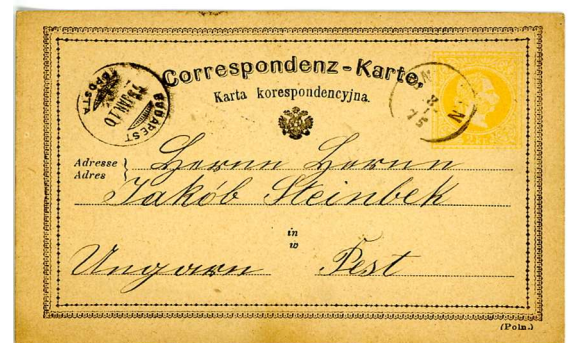 Correspondenz-Karte.
Karta korespondencyjna.
BUDAPEST
75 JAN. 10
POSTA
8
75
Adresse
Adres
Herrn Herrn
Jakób Steinbek
in
w
Ungarn Pest
(Poln.)